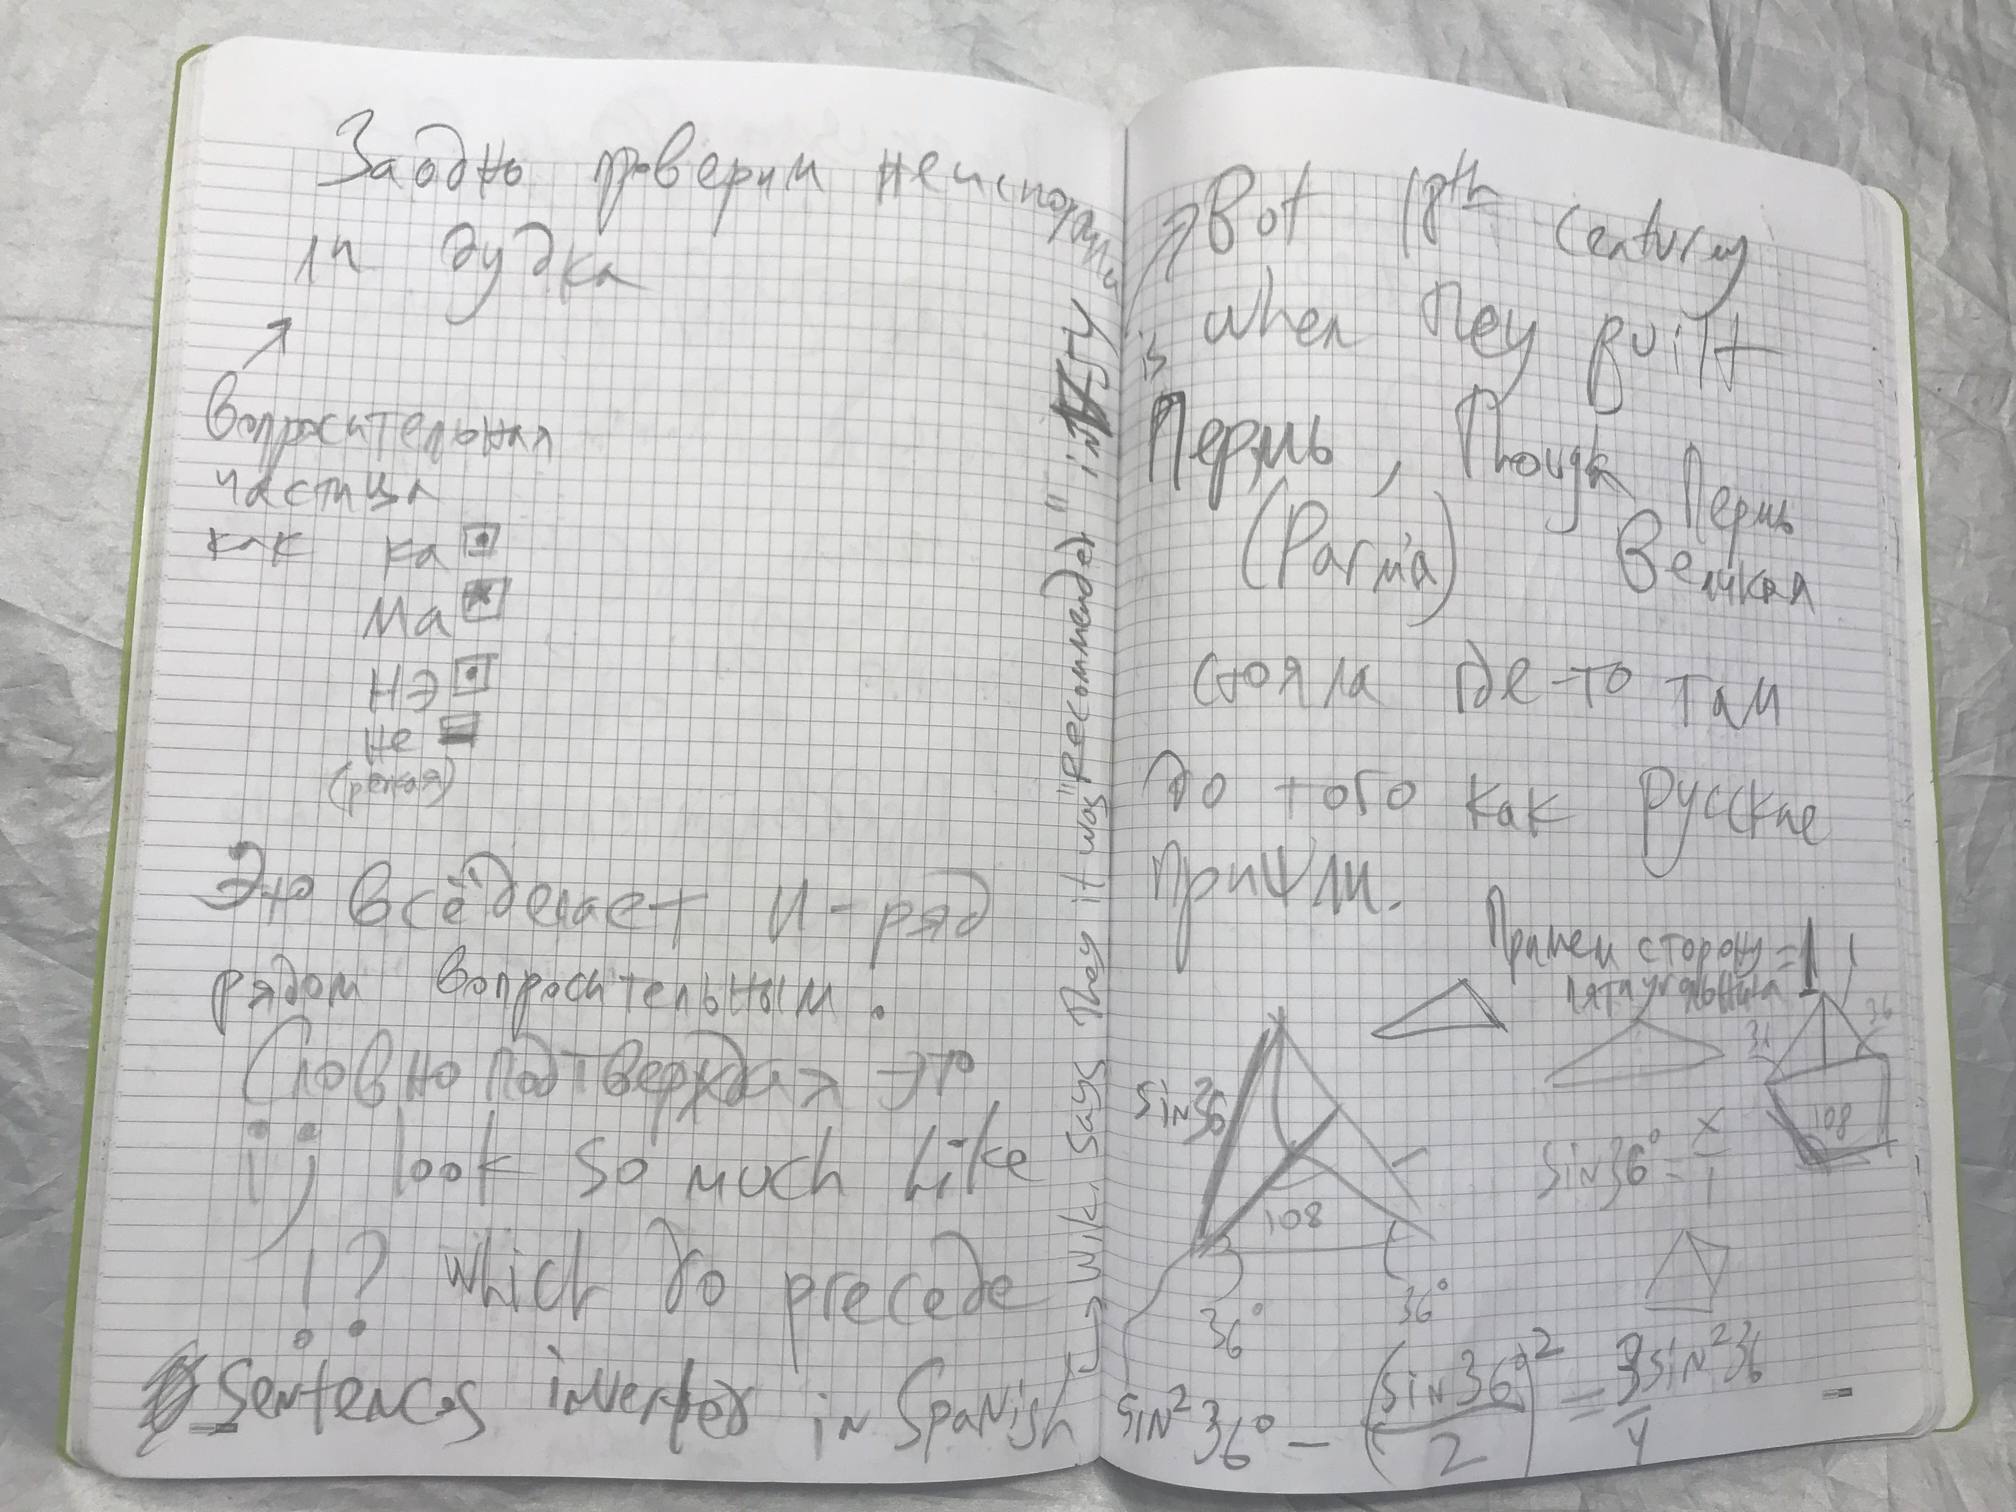 Заодно проверим неиспортила
ли дудка
вопросительная
частица
как ка
Ма
НЭ
не
(редкая)
Это всё делает И-ряд
рядом вопросительным.
Словно подтверждая это
i j look so much like
! ? which do precede
sentences inverted in Spanish
→ Wiki says they it was "Recommended" in 1754
Вот 18th century
is when they built
Пермь, though Пермь
(Parma) Великая
стояла где-то там
до того как русские
пришли.
Примем сторону = 1
пятиугольника
36
sin 36
108
sin 36° = x/1
108
36°
36°
sin² 36° - (sin 36°/2)² = 3 sin² 36/4